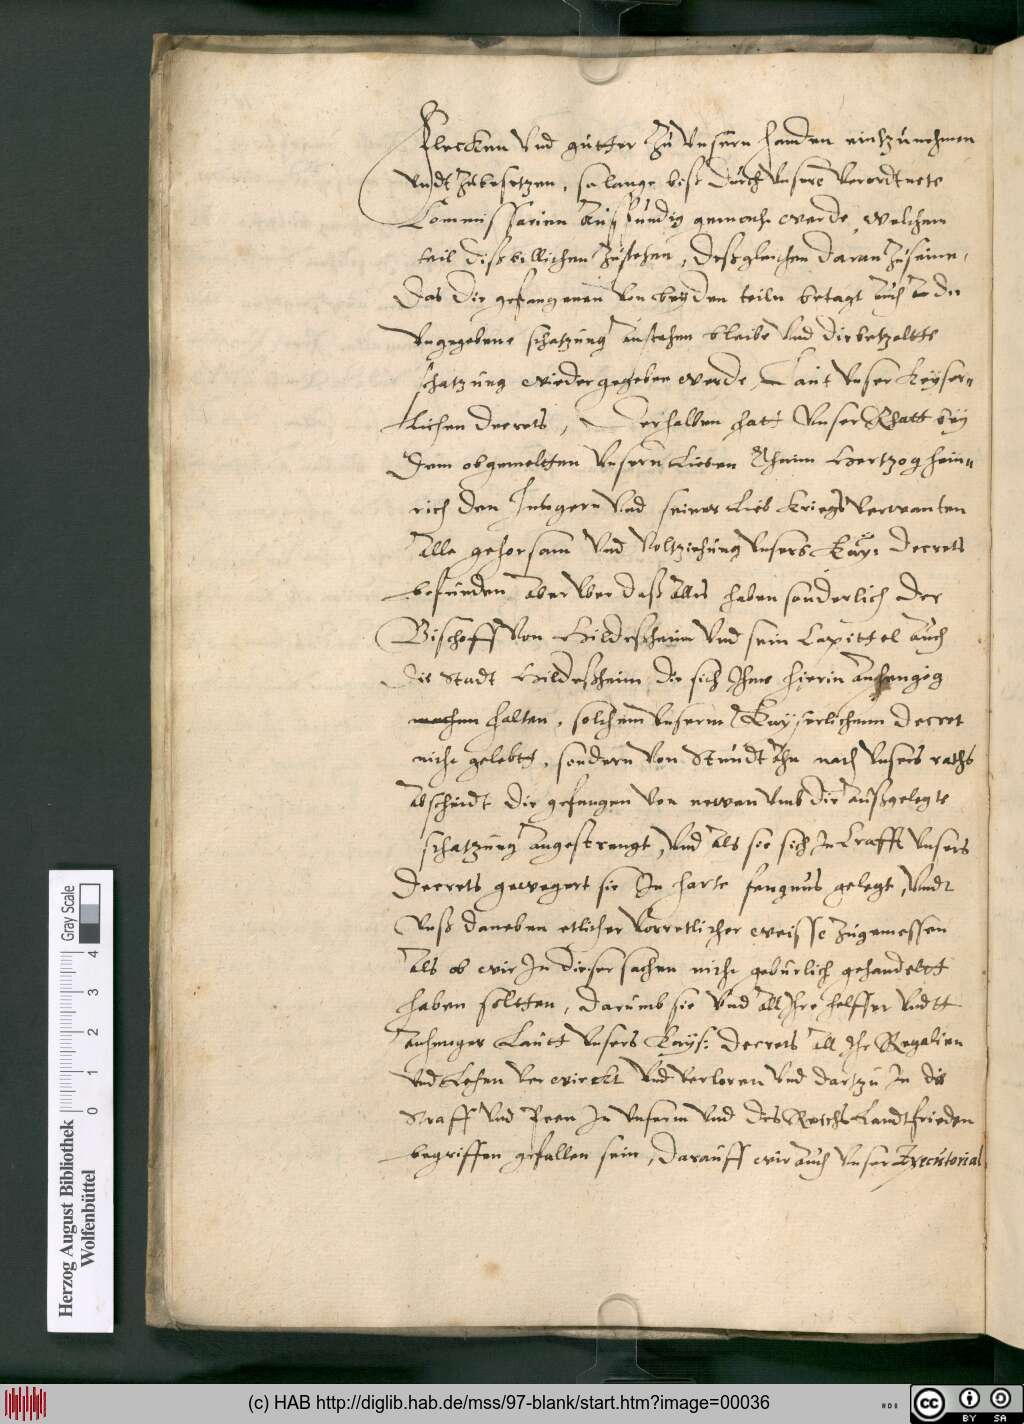 Flecken Vnd gütter Zu Vnsern handen einzunehmen
vndt Zubesetzen, so lange biß durch Vnsere Verordtnete
Commissarien Außfundig gemacht werde, welchem
teil diß billichen Zustehen, deßgleichen daran Zuseinn,
Das die gefangenen Von beyden teiln betagt auch
Vngegebene schatzung Anstehen bleibe Vnd die betzaltte
schatzung wieder gegeben werde, Laut Vnser Keyser=
lichen decrets, Derhalben hatt Vnser Rhatt bey
Dem obgemeltten Vnsern Lieben Oheim Hertzog Hein=
rich den Jungern Vnd seiner Lieb Kriegs Verwanten
Alle gehorsam Vnd Voltziehung Vnsers Kay: decrets
befunden Aber Vber daß Alles haben sonderlich der
Bischoff Von Hildeßheim Vnd sein Capittel Auch
Die Stadt Hildeßheim die sich Ihme hierin Anhengig
machen halten, solchem Vnserm Kayserlichenn decret
nicht gelebtt, sondern Von Stundt Ahn nach Vnsers raths
Abscheidt die gefangen Von newen Vmb die Außgelegte
schatzung Angestrengt, Vnd Als sie sich In Krafft Vnsers
Decrets gewegert sie In harte fengnus gelegt, Vndt
Vnß daneben etlicher Vorretlicher weisse Zugemessen
Als ob wir In dieser sachen nicht geburlich gehandeltt
haben soltten, darumb sie Vnd All Ihre helffer Vndtt
Anhenger Lautt Vnsers Kays: decrets All Ihr Regalien
Vnd Lehen Verwirckt Vnd Verloren Vnd dartzu In die
Straff Vnd Peen In Vnserm Vnd des Reichs Landtfrieden
begriffen gefallen sein, darauff wir Auch Vnser Executorial
Herzog August Bibliothek
Wolfenbüttel
0 1 2 3 4
Gray Scale
(c) HAB http://diglib.hab.de/mss/97-blank/start.htm?image=00036
cc BY SA